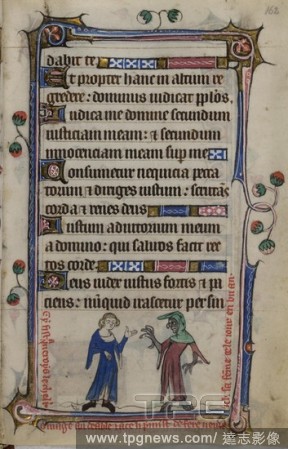 162
dabit te
Et propter hanc in altum re
gredere: dominus iudicat pplos.
Iudica me domine secundum
iusticiam meam: & secundum
innocenciam meam sup me
Consumetur nequicia pecca
torum & diriges iustum: scrutans
corda & renes deus
Iustum adiutorium meum
a domino: qui saluos facit rec
tos corde.
Deus iudex iustus fortis & pa
ciens: nuquid irascetur per sin
TPG
www.tpgnews.com / 達志影像